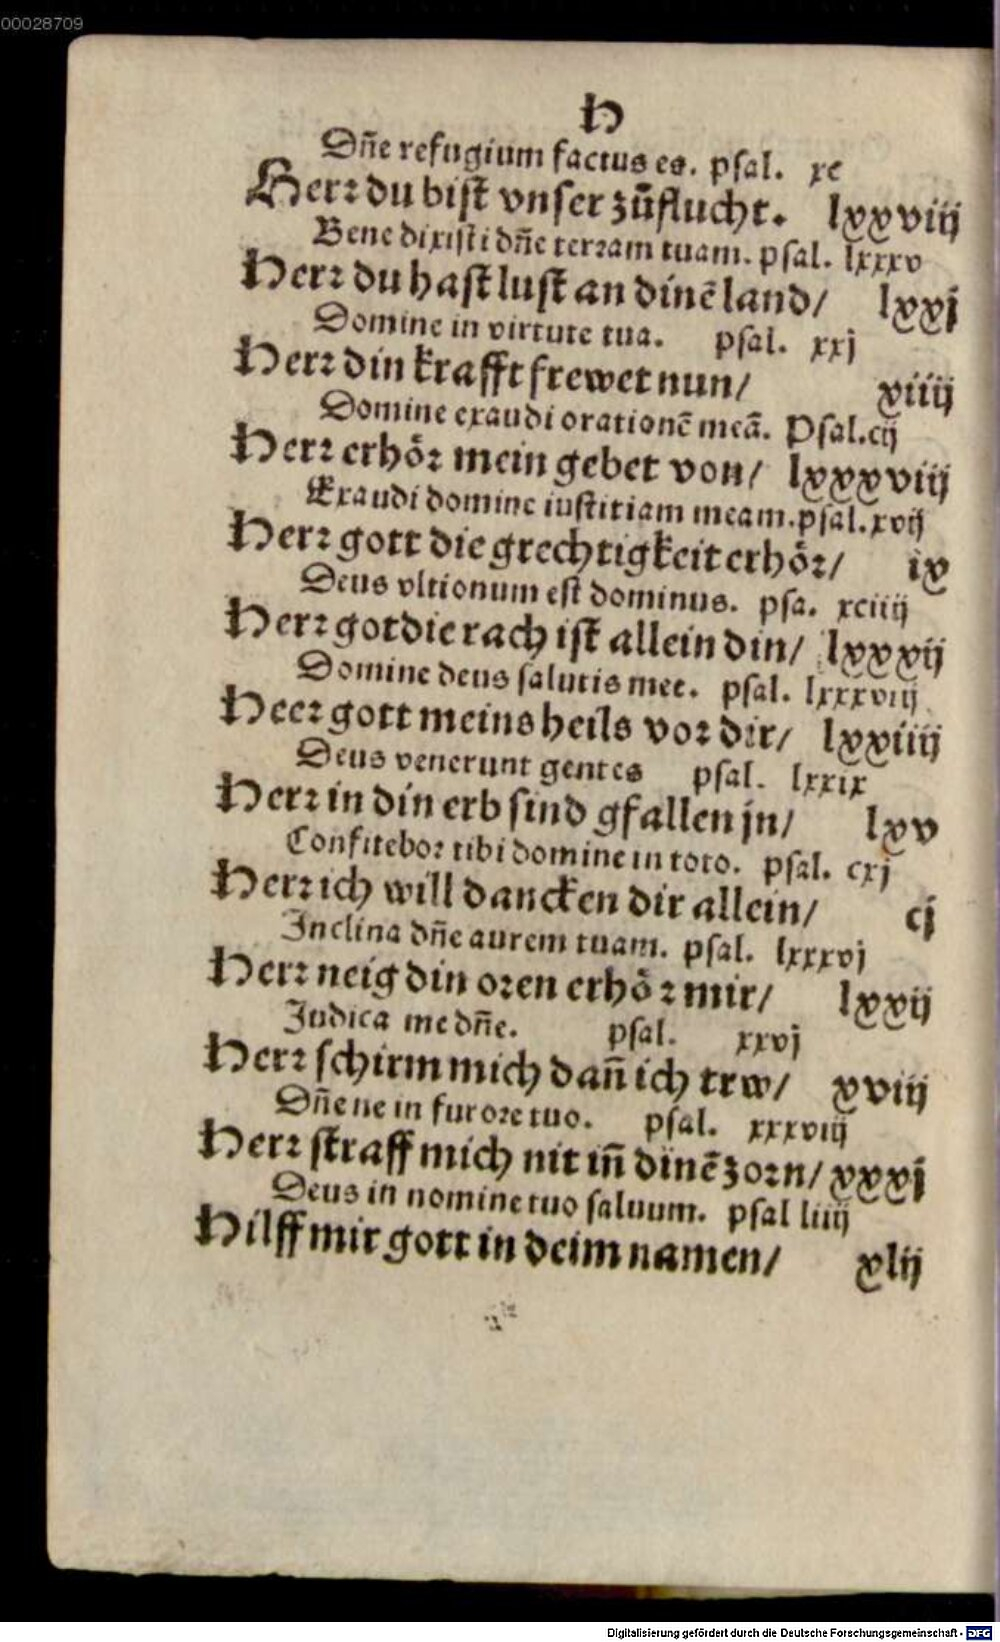 00028709
H
Dñe refugium factus es. psal. xc
Herr du bist vnser zůflucht. lxxviij
Bene dixisti dñe terram tuam. psal. lxxxv
Herr du hast lust an dinẽ land/ lxxj
Domine in virtute tua. psal. xxj
Herr din krafft frewet nun/ xiiij
Domine exaudi orationẽ meã. Psal.cij
Herr erhör mein gebet von/ lxxxviij
Exaudi domine iustitiam meam.psal.xvij
Herr gott die grechtigkeit erhör/ ix
Deus vltionum est dominus. psa. xciiij
Herr got die rach ist allein din/ lxxxij
Domine deus salutis mee. psal. lxxxviij
Heer gott meins heils vor dir/ lxxiiij
Deus venerunt gentes psal. lxxix
Herr in din erb sind gfallen jn/ lxv
Confitebor tibi domine in toto. psal. cxj
Herr ich will dancken dir allein/ cj
Inclina dñe aurem tuam. psal. lxxxvj
Herr neig din oren erhör mir/ lxxij
Judica me dñe. psal. xxvj
Herr schirm mich dañ ich trw/ xviij
Dñe ne in furore tuo. psal. xxxviij
Herr straff mich nit iñ dinẽ zorn/ xxxj
Deus in nomine tuo saluum. psal liiij
Hilff mir gott in deim namen/ xlij
Digitalisierung gefördert durch die Deutsche Forschungsgemeinschaft - DFG